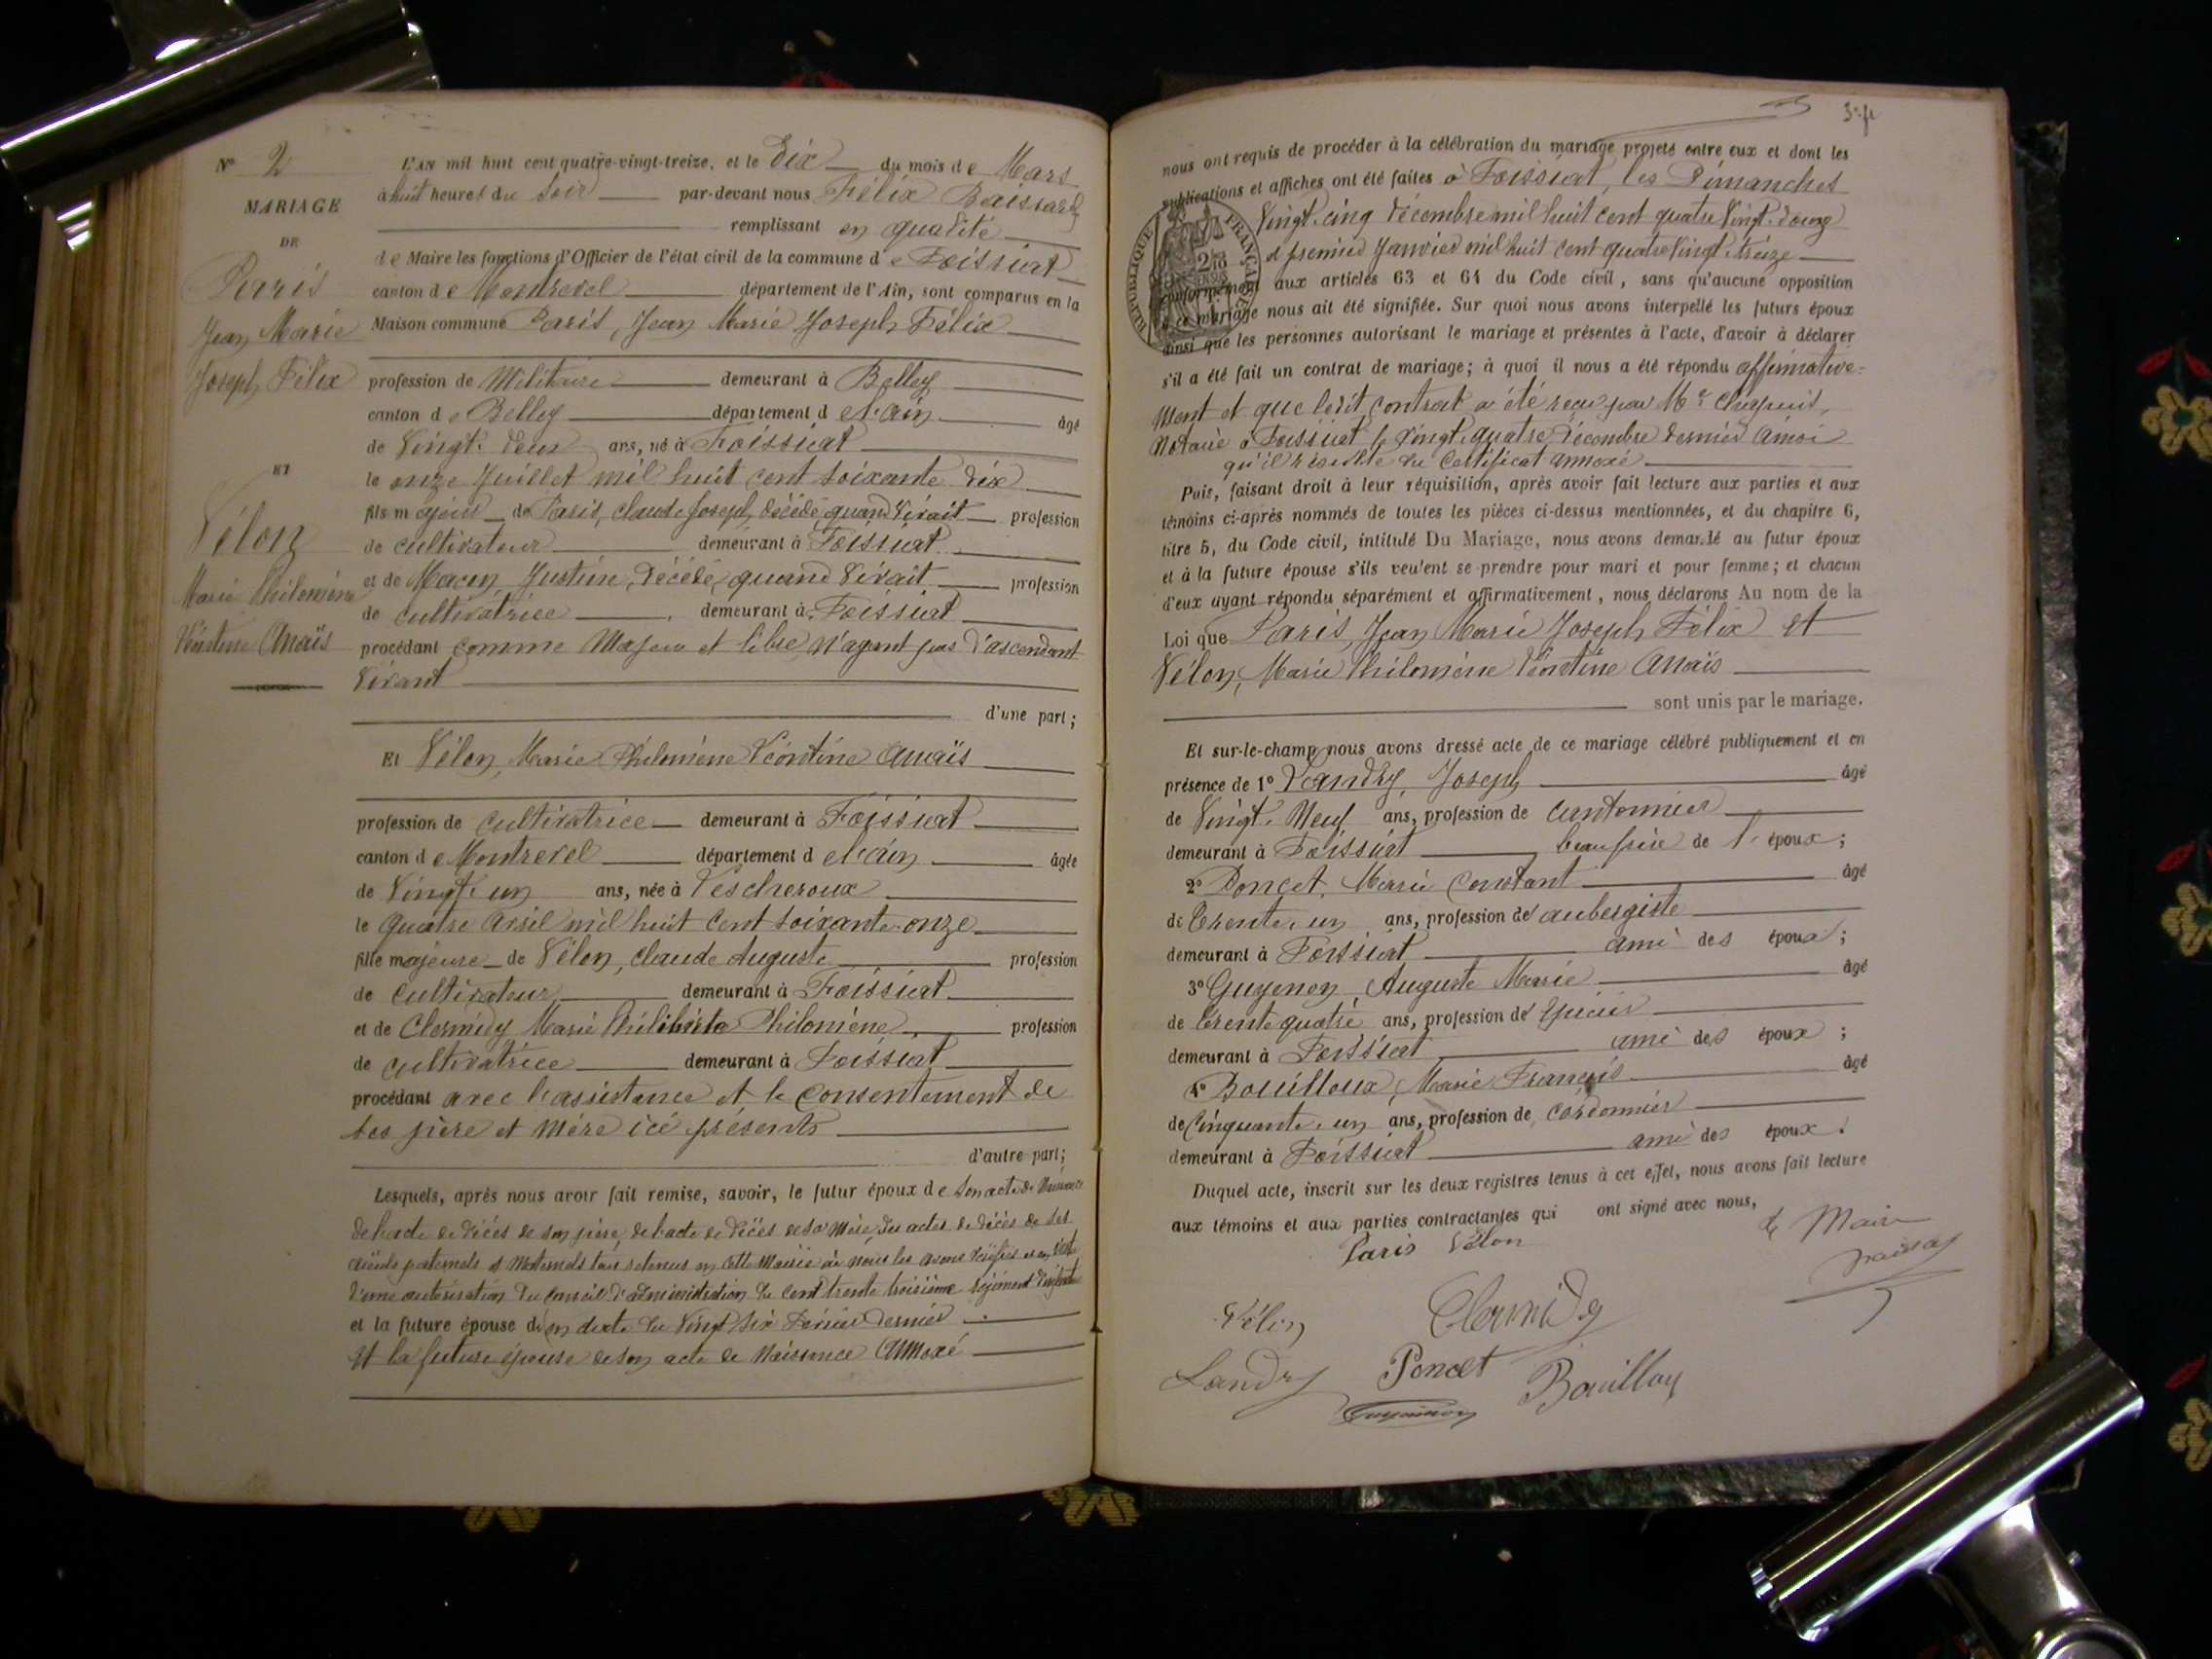 N° 2
MARIAGE
DE
Paris
Jean Marie
Joseph Félix
ET
Vélon
Marie Philomène
Léontine Anaïs
L'AN mil huit cent quatre-vingt-treize, et le Dix du mois de Mars
à huit heures du Soir par-devant nous Félix Baissard
remplissant en qualité
de Maire les fonctions d'Officier de l'état civil de la commune de Foissiat
canton de Montrevel département de l'Ain, sont comparus en la
Maison commune Paris, Jean Marie Joseph Félix
profession de Militaire demeurant à Belley
canton de Belley département de l'ain âgé
de Vingt-deux ans, né à Foissiat
le onze Juillet mil huit cent soixante dix
fils majeur de Paris, Claude Joseph, décédé quand vivait profession
de cultivateur demeurant à Foissiat
et de Macon Justine, décédé, quand vivait profession
de cultivatrice demeurant à Foissiat
procédant comme Majeur et libre, n'ayant pas d'ascendant
vivant
d'une part;
Et Vélon, Marie Philomène Léontine Anaïs
profession de cultivatrice demeurant à Foissiat
canton de Montrevel département de l'ain âgée
de Vingt-un ans, née à Lescheroux
le quatre avril mil huit cent soixante-onze
fille majeure de Vélon, Claude Auguste profession
de cultivateur demeurant à Foissiat
et de Clermidy Marie Philiberte Philomène profession
de cultivatrice demeurant à Foissiat
procédant avec l'assistance et le consentement de
ses père et mère ici présents
d'autre part;
Lesquels, après nous avoir fait remise, savoir, le futur époux de son acte de Naissance
de l'acte de décès de son père, de l'acte de décès de sa mère, des actes de décès de ses
aïeuls paternels et maternels tous retenus en cette Mairie où nous les avons vérifiés et en outre
d'une autorisation du Conseil d'administration du Cent trente troisième régiment d'infanterie
et la future épouse d en date du vingt six Février dernier
et la future épouse de son acte de Naissance annexé
3e ft
nous ont requis de procéder à la célébration du mariage projeté entre eux et dont les
publications et affiches ont été faites à Foissiat, les Dimanches
Vingt-cinq décembre mil huit cent quatre vingt-douze
et premier Janvier mil huit cent quatre vingt-treize
RÉPUBLIQUE FRANÇAISE
conformément aux articles 63 et 64 du Code civil, sans qu'aucune opposition
à ce mariage nous ait été signifiée. Sur quoi nous avons interpellé les futurs époux
ainsi que les personnes autorisant le mariage et présentes à l'acte, d'avoir à déclarer
s'il a été fait un contrat de mariage; à quoi il nous a été répondu affirmative-
ment et que ledit contrat a été reçu par Me Chapuis,
Notaire à Foissiat le vingt-quatre décembre dernier ainsi
qu'il résulte du Certificat annexé
Puis, faisant droit à leur réquisition, après avoir fait lecture aux parties et aux
témoins ci-après nommés de toutes les pièces ci-dessus mentionnées, et du chapitre 6,
titre 5, du Code civil, intitulé Du Mariage, nous avons demandé au futur époux
et à la future épouse s'ils veulent se prendre pour mari et pour femme; et chacun
d'eux ayant répondu séparément et affirmativement, nous déclarons Au nom de la
Loi que Paris, Jean Marie Joseph Félix et
Vélon, Marie Philomène Léontine Anaïs
sont unis par le mariage.
Et sur-le-champ nous avons dressé acte de ce mariage célébré publiquement et en
présence de 1° Landry, Joseph âgé
de Vingt-Neuf ans, profession de cantonnier
demeurant à Foissiat beau frère de l'époux;
2° Poncet, Marie Constant âgé
de trente-un ans, profession de aubergiste
demeurant à Foissiat ami des époux;
3° Guyenon, Auguste Marie âgé
de trente quatre ans, profession de épicier
demeurant à Foissiat ami des époux;
4° Bouilloux, Marie François âgé
de Cinquante-un ans, profession de cordonnier
demeurant à Foissiat ami des époux.
Duquel acte, inscrit sur les deux registres tenus à cet effet, nous avons fait lecture
aux témoins et aux parties contractantes qui ont signé avec nous,
Paris Vélon
Le Maire
Baissard
Vélon
Clermidy
Landry
Poncet
Bouilloux
Guyennon